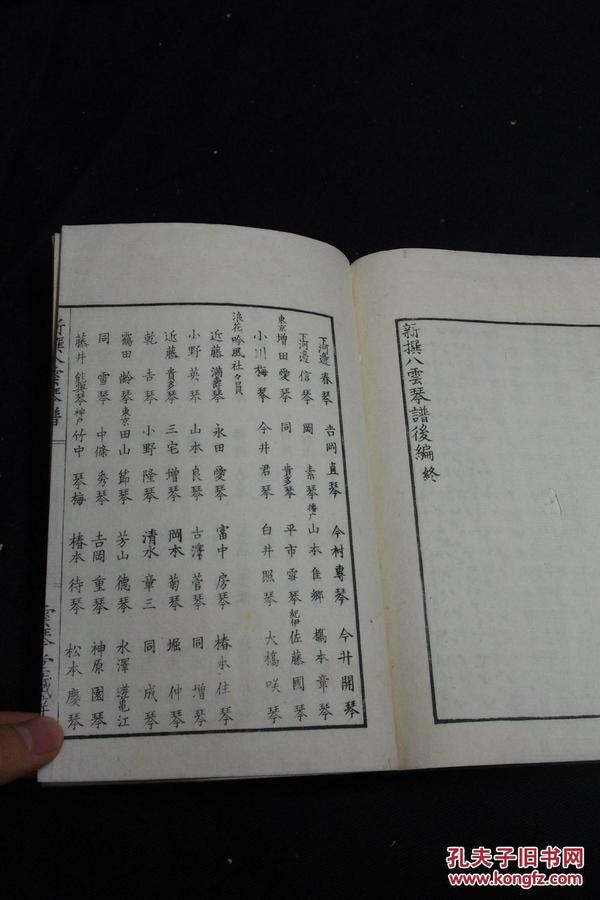 新撰八雲琴譜後編 終
下河邊 春琴 吉岡 直琴 今村 專琴 今井 開琴
下河邊 信琴 岡 素琴 播户 山本 隹郷 橋本 章琴
東京 増田 愛琴 同 貴多琴 平市 雪琴 紀伊 佐藤 國琴
小川 梅琴 今井 君琴 白井 照琴 大橋 咲琴
浪花吟風社々員
近藤 満爵琴 永田 愛琴 富中 房琴 椿本 住琴
小野 英琴 山本 良琴 古澤 菅琴 同 増琴
近藤 貴多琴 三宅 増琴 岡本 菊琴 堀 仲琴
乾 吉琴 小野 隆琴 清水 章三 同 成琴
靍田 齢琴 東京 田山 節琴 芳山 德琴 水澤 遊亀江
同 雪琴 中條 秀琴 吉岡 重琴 神原 園琴
藤井 琴 神户 竹中 琴梅 椿本 待琴 松本 慶琴
新撰八雲琴譜
孔夫子旧书网
kongfz.com